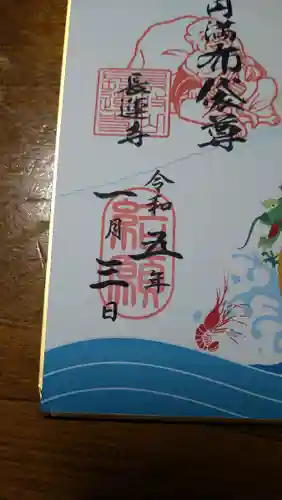 円満布袋尊
長蓮寺
令和五年
一月三日